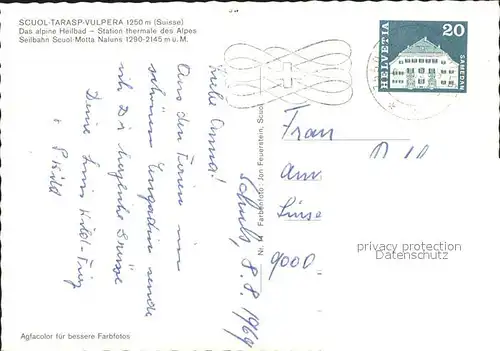 SCUOL-TARASP-VULPERA 1250 m (Suisse)
Das alpine Heilbad – Station thermale des Alpes
Seilbahn Scuol-Motta Naluns 1290-2145 m ü. M.
HELVETIA
20
SAMEDAN
Schuls, 8.8.1969
Liebe Anna!
Aus den Ferien im
schönen Engadin sende
ich Dir herzliche Grüsse
Deine
+ P.
Nr. 14 Farbenfoto: Jon Feuerstein, Scuol
Frau
9000
privacy protection
Datenschutz
Agfacolor für bessere Farbfotos